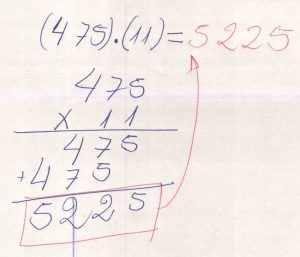 (475).(11)=5225
475
x 11
475
+475
5225